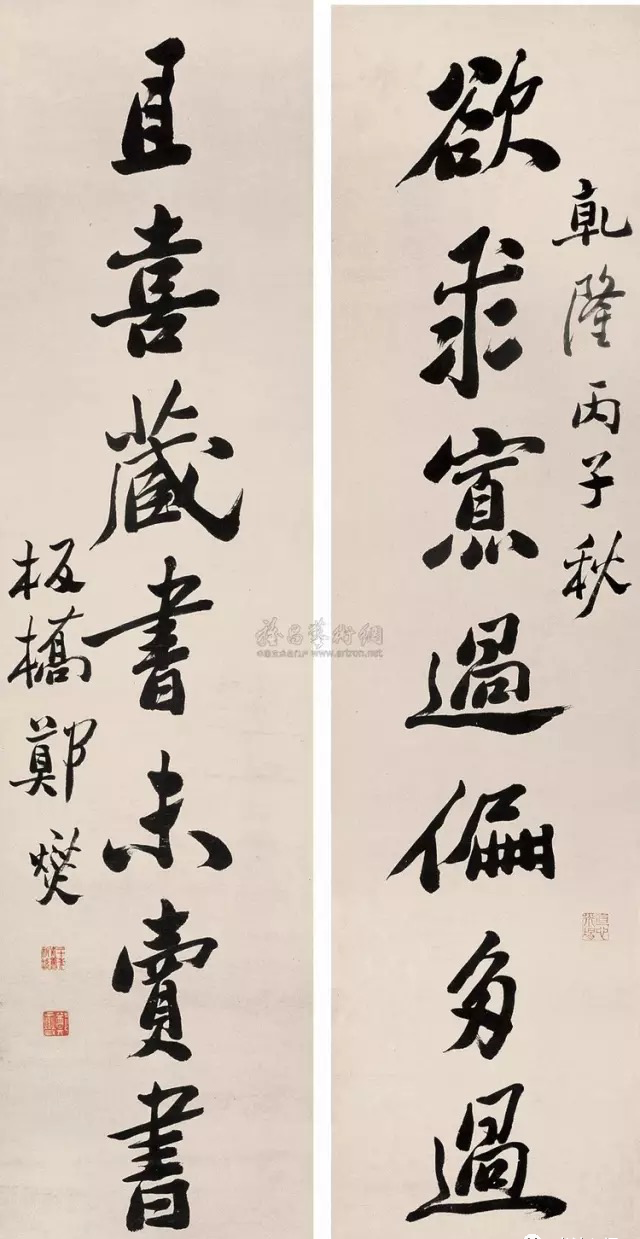 乾隆丙子秋
欲求寡過偏多過
且喜藏書未賣書
板橋鄭燮
www.artron.net